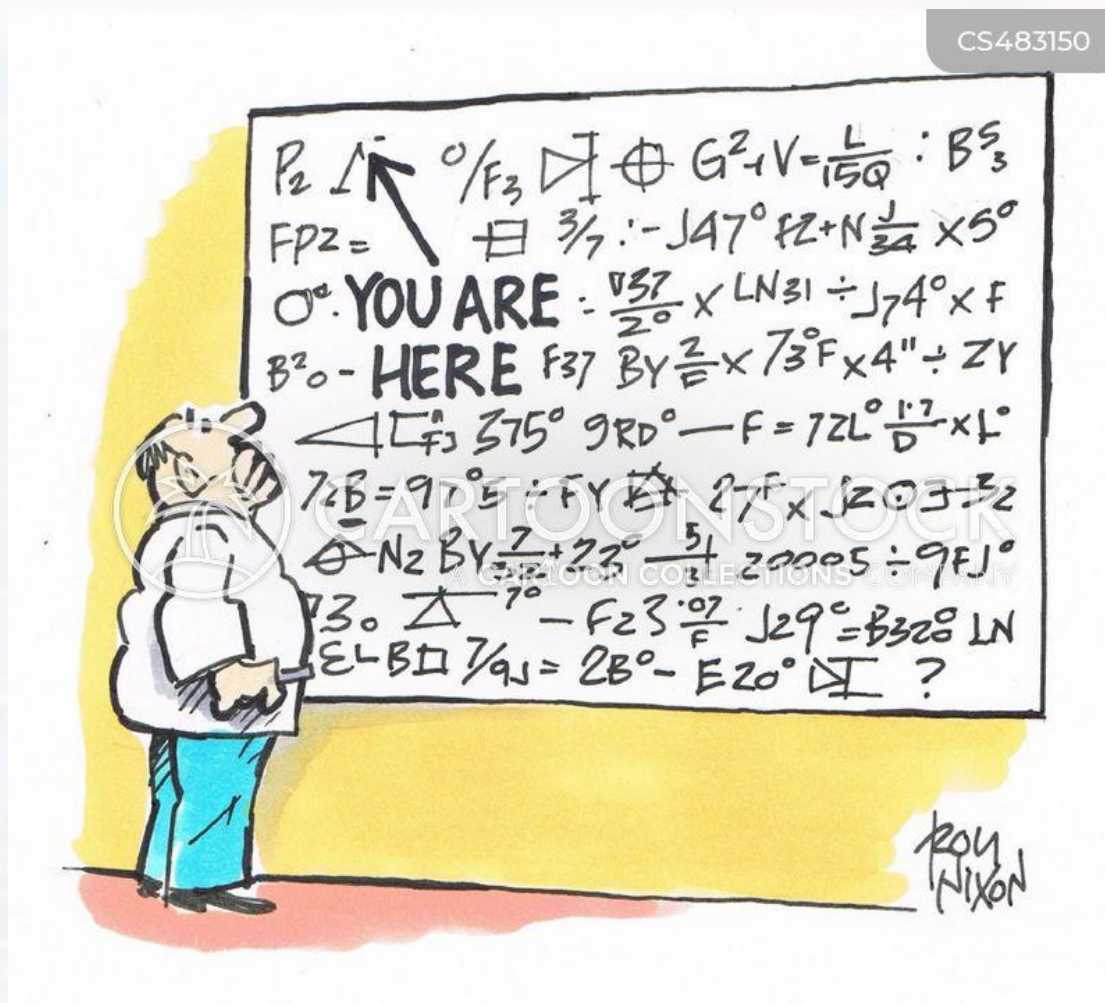 CS483150
P₂ % F₃ G²+V=L/15Q : B⁵₃
FPZ = 3/7 ∴- J47° FZ+N J/34 x5°
O°. YOU ARE ÷ ∇37/2° x LN31 ÷ J74° x F
B²₀ - HERE F37 BY 2/F x 73°F x 4" ÷ ZY
375° 9RD° — F = 7ZL° 1.7/D x L°
7ZB = 97°5 ÷ FY 27F x JZ0
NZ BY +23° 5/3 20005 ÷ 9FJ°
730 7° - FZ3 .07/F JZ9° = B320° LN
ΣLB□ 7/9J = 2B° - EZ0° ?
CARTOONSTOCK
A CARTOON COLLECTIONS COMPANY
ROY
NIXON